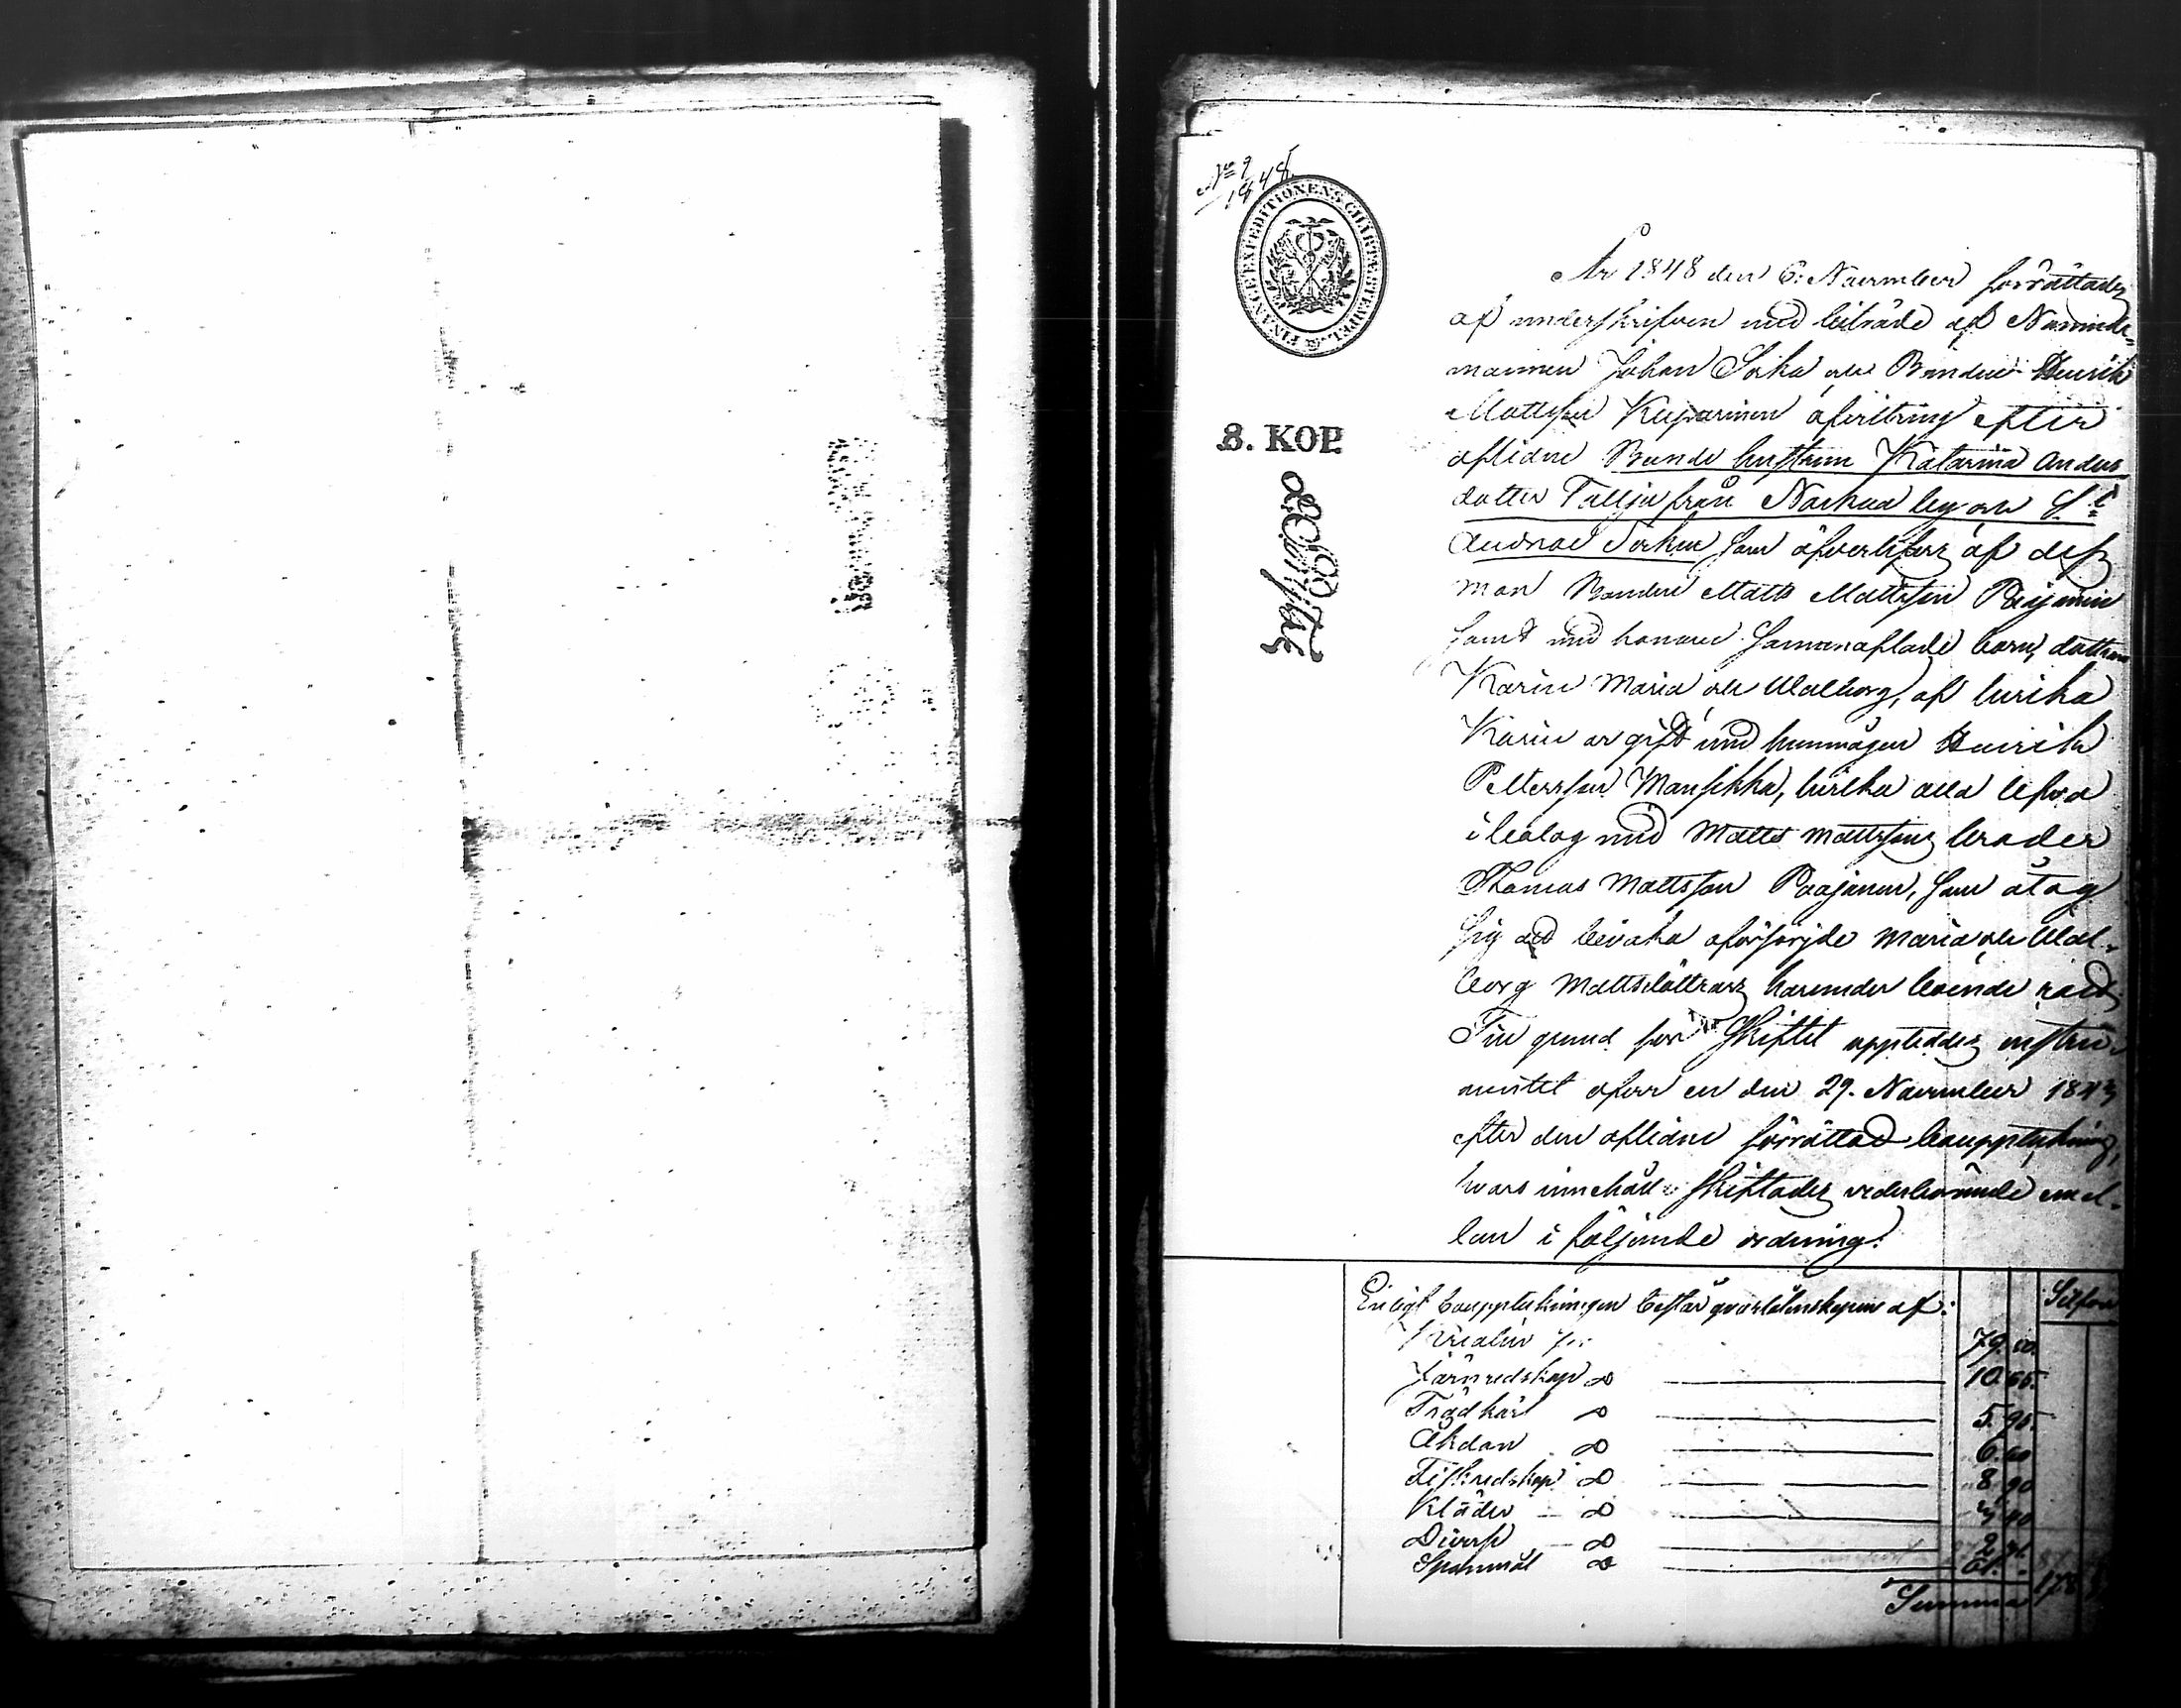 No 9
1848.
FINANCE EXPEDITIONENS CHARTÆ STEMPEL.
8. KOP.
År 1848 den 6. November förrättades
af underskrifven med biträde af Nämnde-
mannen Johan Sorka och Bonden Henrik
Mattsson Kuparinen afvittring efter
aflidne Bonde hustrun Katarina Anders
dotter Tallja från Narkua by och St
Andreæ Sockn som öfverlefves af dess
man Bonden Matts Mattsson Paajanen
samt med honom sammanaflade barn, döttrarne
Karin Maria och Walborg, af hvilka
Karin är gift med hemmågen Henrik
Pettersson Mansikka, hvilka alla lefva
i bolag med Matts Mattssons broder
Thomas Mattsson Paajanen, som åtog
sig att bevaka oförsörjde Maria och Wal-
borg Mattsdöttrars härunder beroende rätt
Till grund för skiftet upptedde instru-
mentet öfver en den 29. November 1843
efter den aflidne förrättad bouppteckning,
hvars innehåll skiftades vederbörande emel-
lan i följande ordning:
Enligt bouppteckningen består qvarlåtenskapen af:
Silfver
Kreatur för 79.
Järnredskap 10
Trädkäril 5. 95.
Åkdon 6. 60
Fiskredskap 8. 90
Kläder
Divers 2
Spanmål 61.
Summa 178